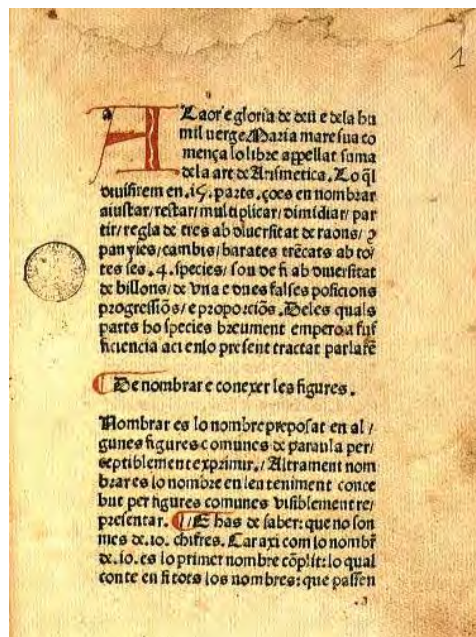 1
A Laor e gloria de deu e dela hu
mil uerge Maria mare sua co
mença lo libre appellat suma
dela art de Arismetica. Lo q̄l
diuisirem en .15. parts. çoes en nombrar
aiustar/ restar/ multiplicar/ dimidiar/ par
tir/ regla de tres ab diuersitat de raons/ ꝯ
panyies/ cambis/ barates trēcats ab to/
tes ses .4. species/ sou de fi ab diuersitat
de billons/ de vna e dues falses posicions
progressiōs/ e proporciōs. Deles quals
parts ho species breument empero a suf
ficiencia aci enlo present tractat parlarē
De nombrar e conexer les figures.
Nombrar es lo nombre preposat en al/
gunes figures comunes de paraula per/
septiblement exprimir./ Altrament nom
brar es lo nombre en len teniment conce
but per figures comunes visiblement re/
presentar. E has de saber: que no son
mes de .10. chifres. Car axi com lo nombr̄
de .10. es lo primer nombre cōplit: lo qual
conte en si tots los nombres: que passen